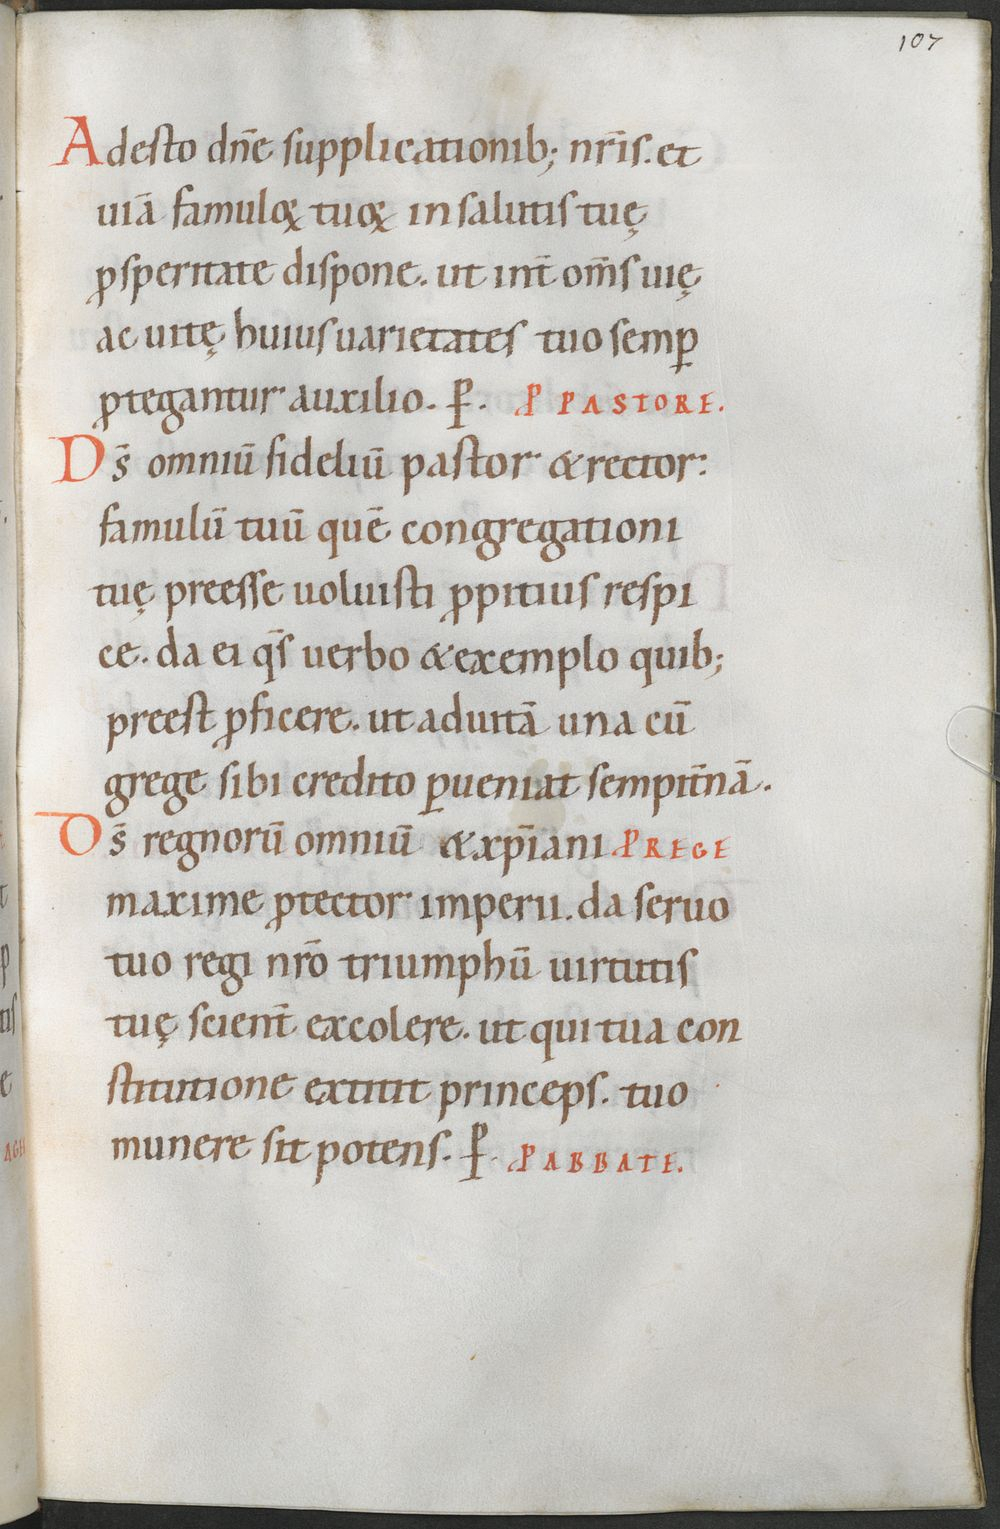 107
Adesto dn̄e supplicationib; nr̄is. et
uiā famuloꝝ tuoꝝ in salutis tuę
ꝓsperitate dispone. ut int̄ om̄s uię
ac uitę huius uarietates tuo semꝑ
ꝓtegantur auxilio. P̄. P̄ PASTORE.
Ds̄ omniū fideliū pastor & rector:
famulū tuū quē congregationi
tuę preesse uoluisti ꝓpitius respi
ce. da ei qs̄ uerbo & exemplo quib;
preest ꝓficere. ut ad uitā una cū
grege sibi credito ꝑueniat sempit̄nā.
Ds̄ regnorū omniū & xp̄iani P̄ REGE
maxime ꝓtector imperii. da seruo
tuo regi nr̄o triumphū uirtutis
tuę scient̄ excolere. ut qui tua con
stitutione extitit princeps. tuo
munere sit potens. P̄. P̄ ABBATE.